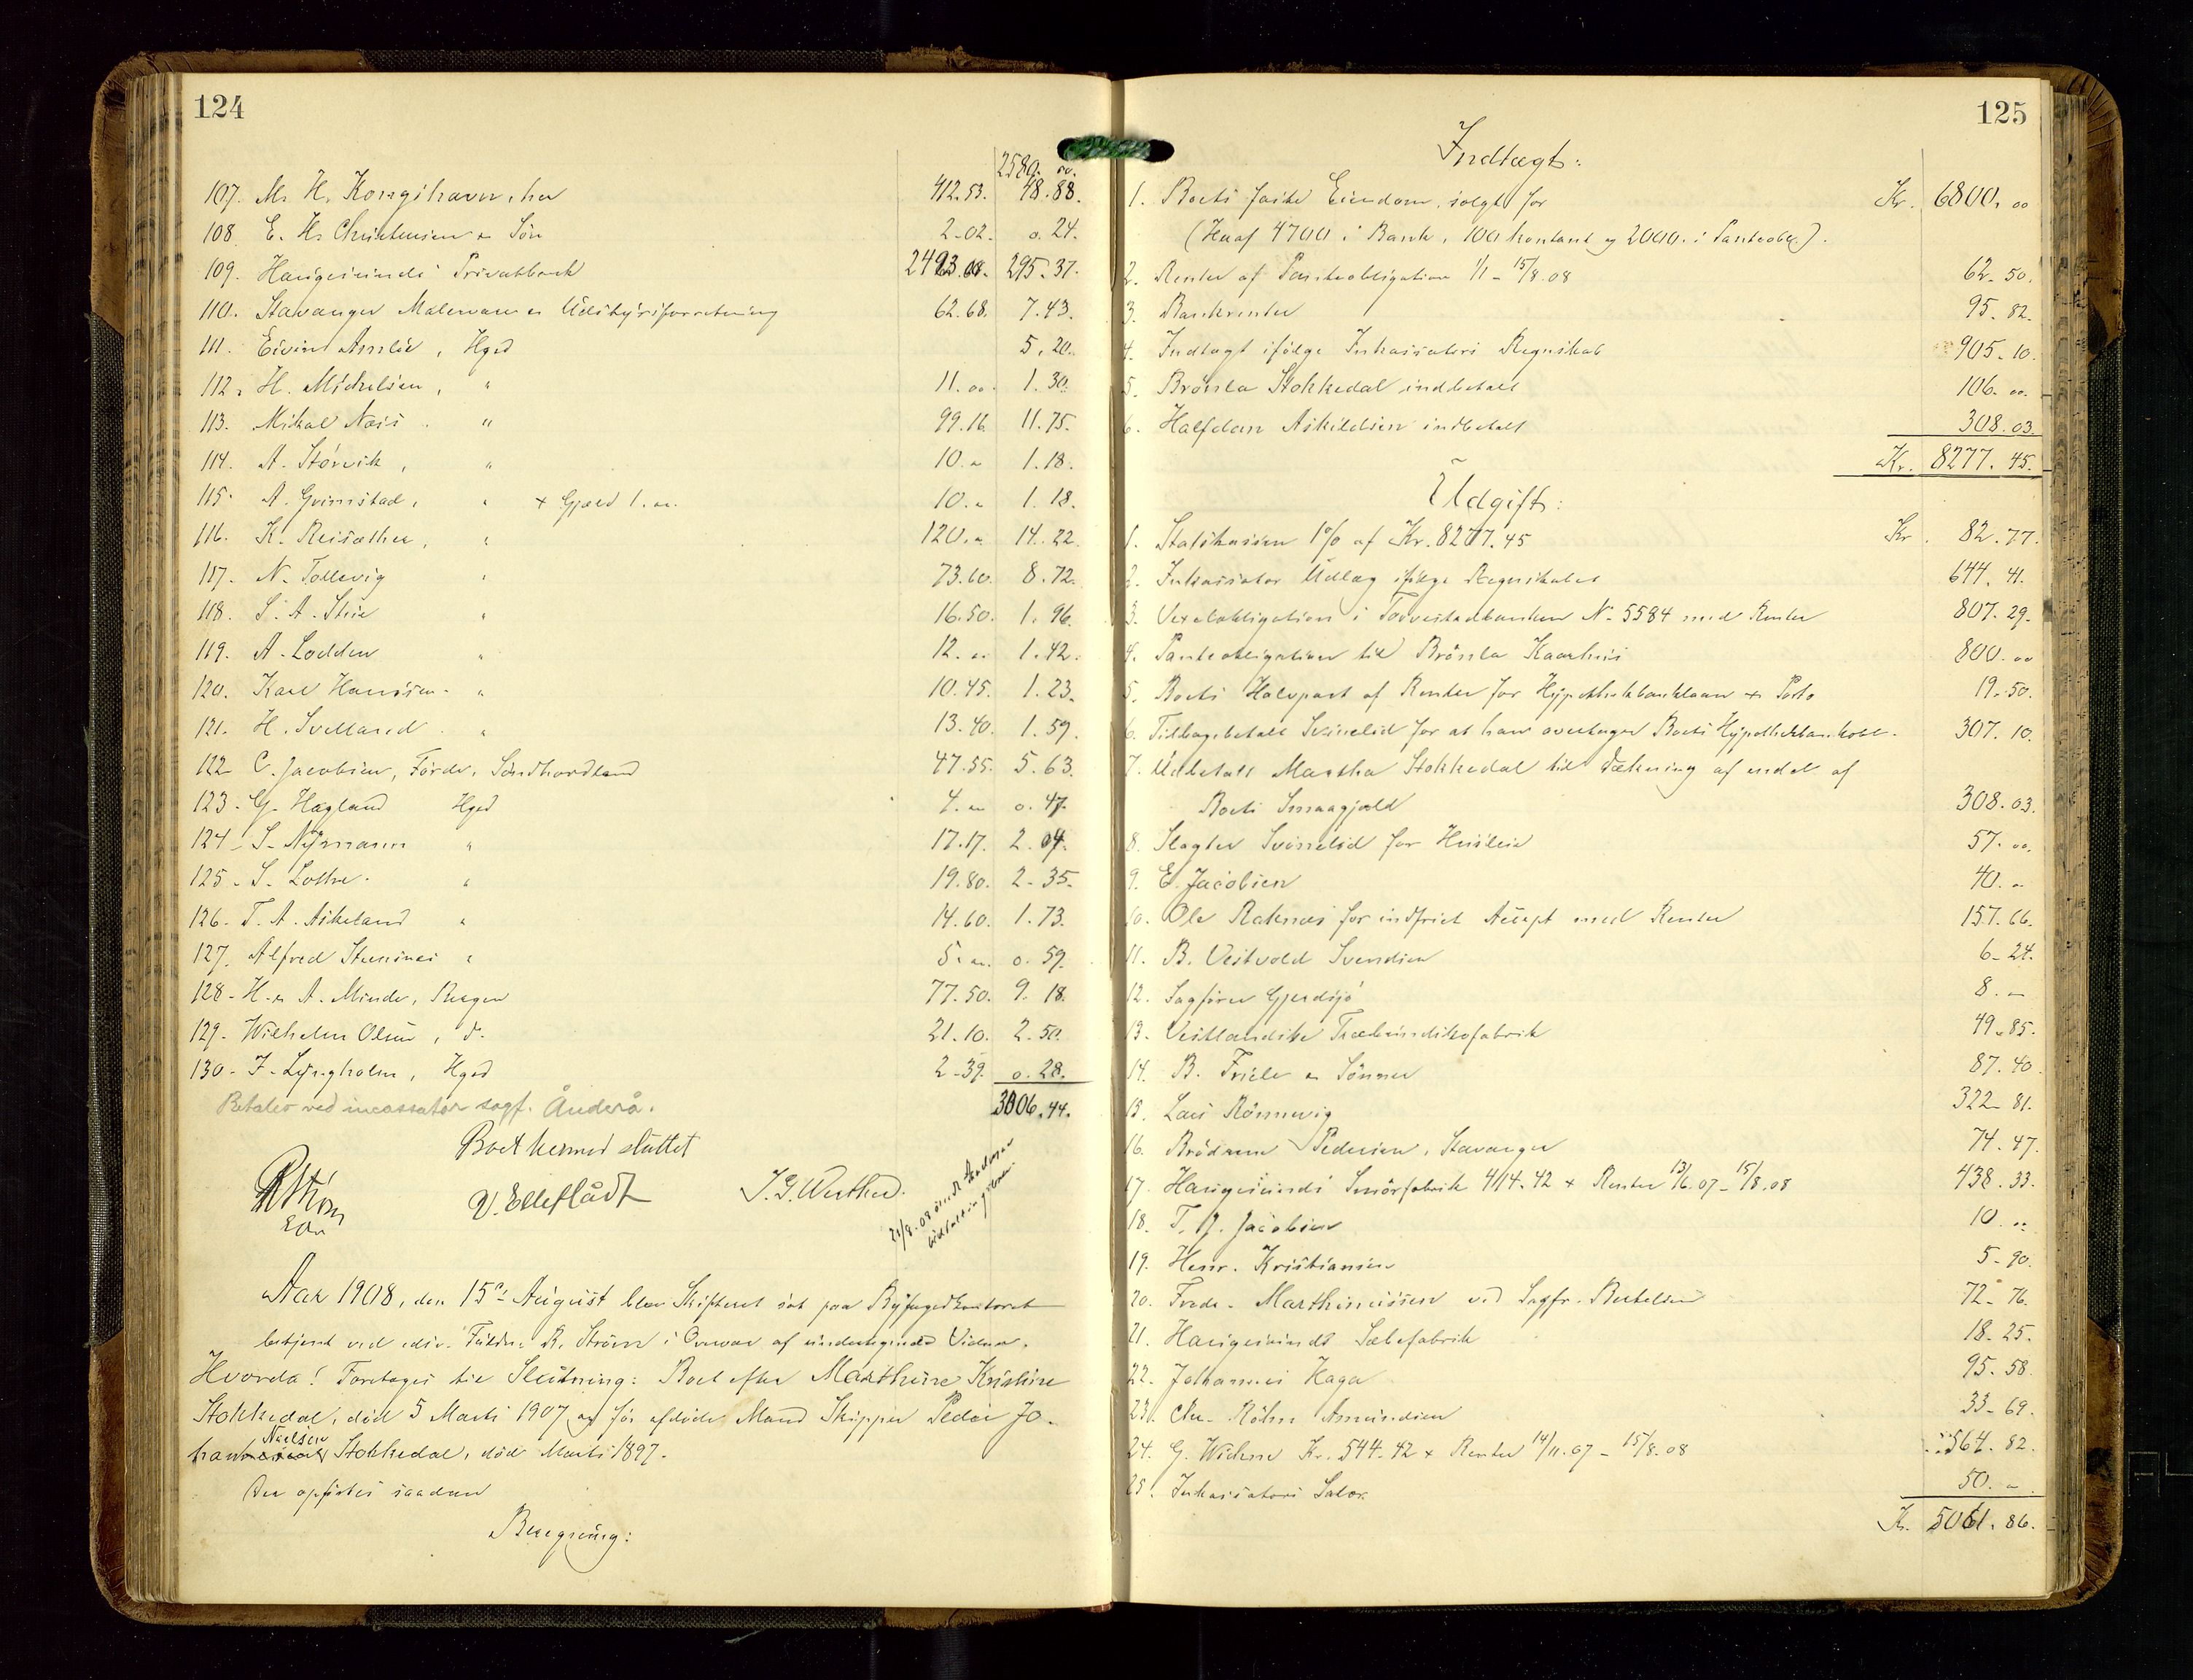 124
2580. 00.
107. M. H. Kongshavn, her 412.53. 48.88.
108. E. H. Christensen & Søn 2-02. 0.24.
109. Haugesunds Privatbank 2493.08. 295.37.
110. Stavanger Malervare & Udstyrsforretning 62.68. 7.43.
111. Eivind Amlie, Hgsd 5.20.
112. H. Michelsen, " 11.00. 1.30.
113. Mikal Næs " 99.16. 11.75.
114. A. Størvik, " 10.- 1.18.
115. A. Grimstad, " + Gjæld 10.- 1.18.
116. K. Reisæther, " 120.- 14.22.
117. N. Tollevig " 73.60. 8.72.
118. S. A. Stue " 16.50. 1.96.
119. A. Lodden " 12.- 1.42.
120. Karl Hanssen " 10.45. 1.23.
121. H. Svelland " 13.40. 1.59.
122 C. Jacobsen, Førde, Søndhordland 47.55. 5.63.
123. G. Hagland Hgsd 4.- 0.47.
124. S. Nymann " 17.17. 2.04.
125. S. Lothe. " 19.80. 2-35.
126. T. A. Aikeland " 14.60. 1.73.
127. Alfred Stensnes " 5.- 0.59.
128. H. & A. Minde, Bergen 77.50. 9.18.
129. Wilhelm Olsen, d. 21.10. 2.50.
130. J. Lyngholm, Hgsd 2-39. 0.28.
Betales ved incassator sagf. Anderå. 3006.44.
Boet hermed sluttet
R Strøm V. Elleflådt J. G. Werther.
Aar 1908, den 15de August blev Skifteret sat paa Byfogedkontoret
betjent ved edsv. Fuldm. R. Strøm i Overvær af undertegnede Vidner.
Hvorda! Foretoges til Slutning: Boet efter Marthine Kristine
Stokkedal, død 5 Marts 1907 og før afdøde Mand Skipper Peder Jo-
han Nielsen Stokkedal, død Marts 1897.
Der opførtes saadan
Beregning:
125
Indtægt:
1. Boets faste Eiendom, solgt for Kr. 6800.00
(Heraf 4700 i Bank, 100 kontant og 2000. i Panteobl.).
2. Renter af Panteobligation 1/1 - 15/8.08 62.50.
3. Bankrenter 95.82.
4. Indtægt ifølge Inkassators Regnskab 905.10.
5. Brønla Stokkedal indbetalt 106.00.
6. Halfdan Askildsen indbetalt 308.03.
Kr. 8277.45.
Udgift:
1. Statskassen 1% af Kr. 8277.45 Kr. 82.77.
2. Inkassator Udlæg ifølge Regnskabet 644.41.
3. Vexelobligation i Torvestadbanken No 5584 med Renter 807.29.
4. Panteobligation til Brønla Kaarhus 800.00
5. Boets Halvpart af Renter for Hypothekbanklaan + Porto 19.50.
6. Tilbagebetalt Svinelid for at han overtager Boets Hypothekbankobl. 307.10.
7. Udbetalt Martha Stokkedal til Dækning af endel af
Boets Smaagjæld 308.03.
8. Slagter Svinelid for Husleie 57.00.
9. E. Jacobsen 40.-
10. Ole Raknes for indfriet Accept med Renter 157.66.
11. B. Vestvold Svendsen 6-24.
12. Sagfører Gjerdsjø 8.-
13. Vestlandske Træindustrifabrik 49.85.
14. B. Friele & Sønner 87.40.
15. Lars Rønnevig 322.81.
16. Brødrene Pedersen, Stavanger 74.47.
17. Haugesunds Smørfabrik 414.42 + Renter 13/6.07 - 15/8.08 438.33.
18. T. J. Jacobsen 10.00
19. Henr. Kristiansen 5.90.
20. Fredr. Marthinussen ved Sagfr. Bertelsen 72.76.
21. Haugesunds Sæbefabrik 18.25.
22. Johannes Haga 95.58.
23. Chr. Røhn Amundsen 33.69.
24. G. Widene Kr. 544.42 + Renter 14/11.07 - 15/8.08 564.82.
25. Inkassators Salær 50.-
Kr. 5061.86.